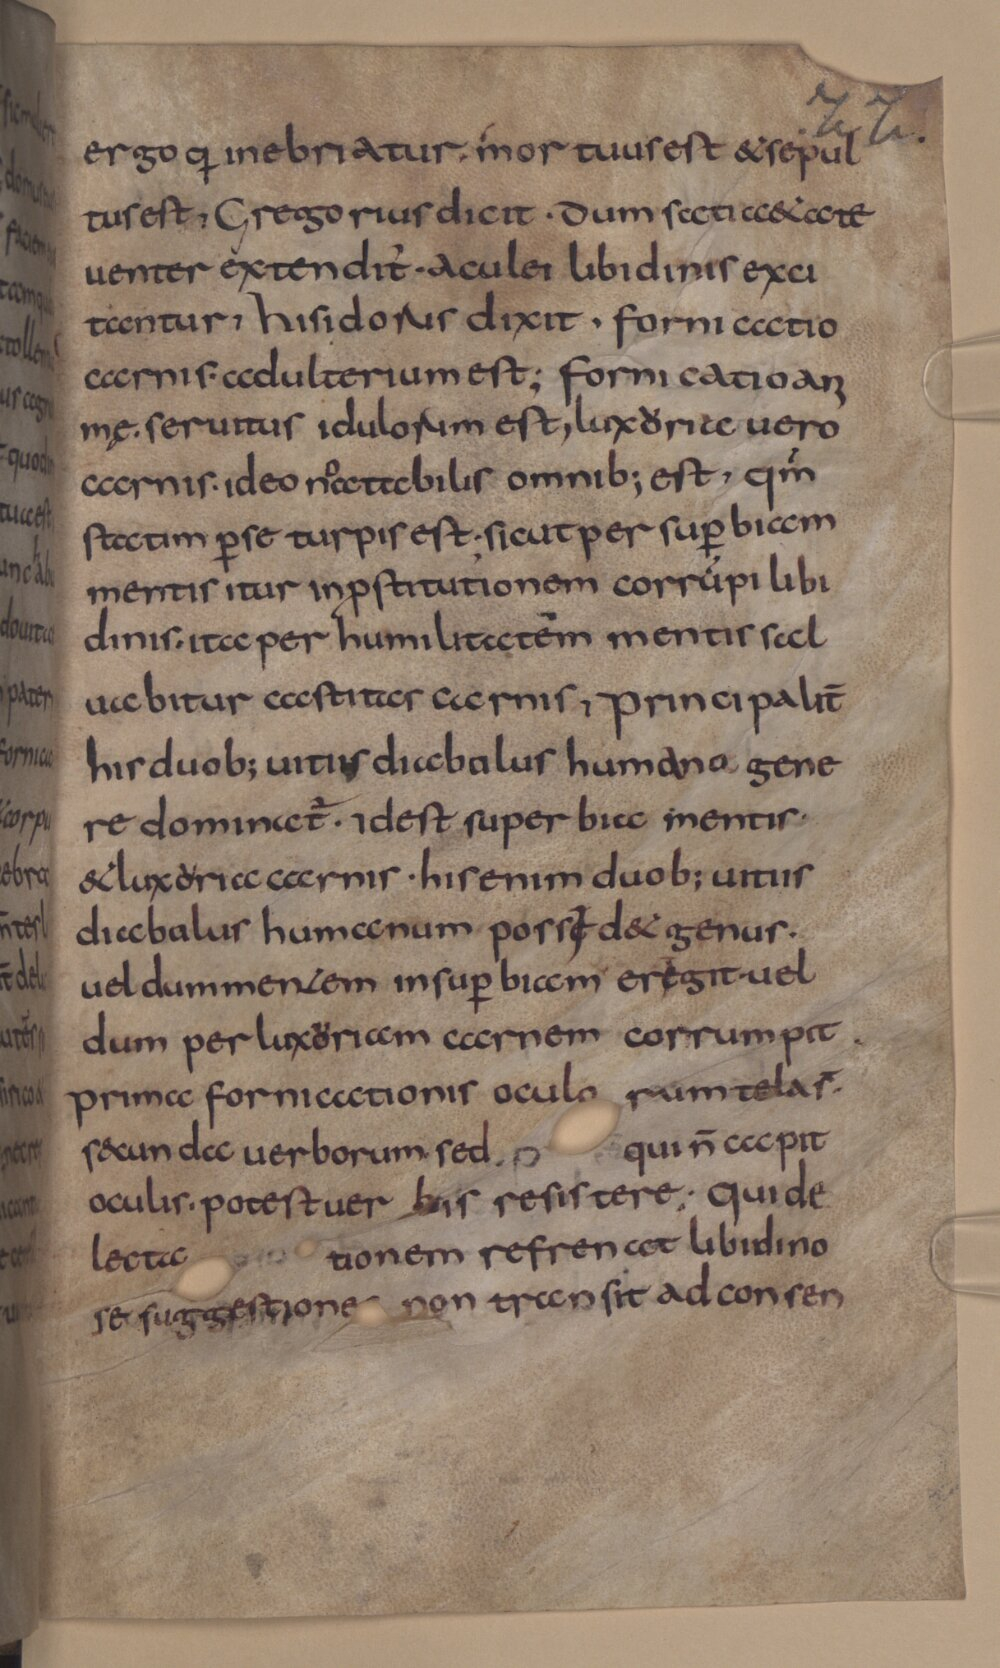 77.
ergo q̨ inebriatur. ḿor tuus est & sepul
tus est; Gregorius dicit. dum satia&ate
uenter extendit̉. aculei libidinis exci
tantur; hisidorus dixit. fornicatio
carnis. adulterium est; fornicatio an
mę. seruitus idulorum est, luxoria uero
carnis. ideo notabilis omnib; est, qm̄
statim ꝑse turpis est. sicut per suꝑbiam
mentis itur inꝓstitutionem corrupi libi
dinis. ita per humilitatem mentis sal
uabitur castitas carnis; principalit̄
his duob; uitiis diabalus humano gene
re dominat̉. idest superbia mentis.
& luxoria carnis. his enim duob; uitiis
diabalus humanum possid& genus.
uel dum mentem insuꝑbiam eregit. uel
dum per luxoriam carnem corrumpit.
prima fornicationis oculorum telas.
s&cunda uerborum. sed qui n̄ capit
oculis. potest uerbis resistere. Qui de
lectationem refrenat libidino
se suggestiones non transit ad consen